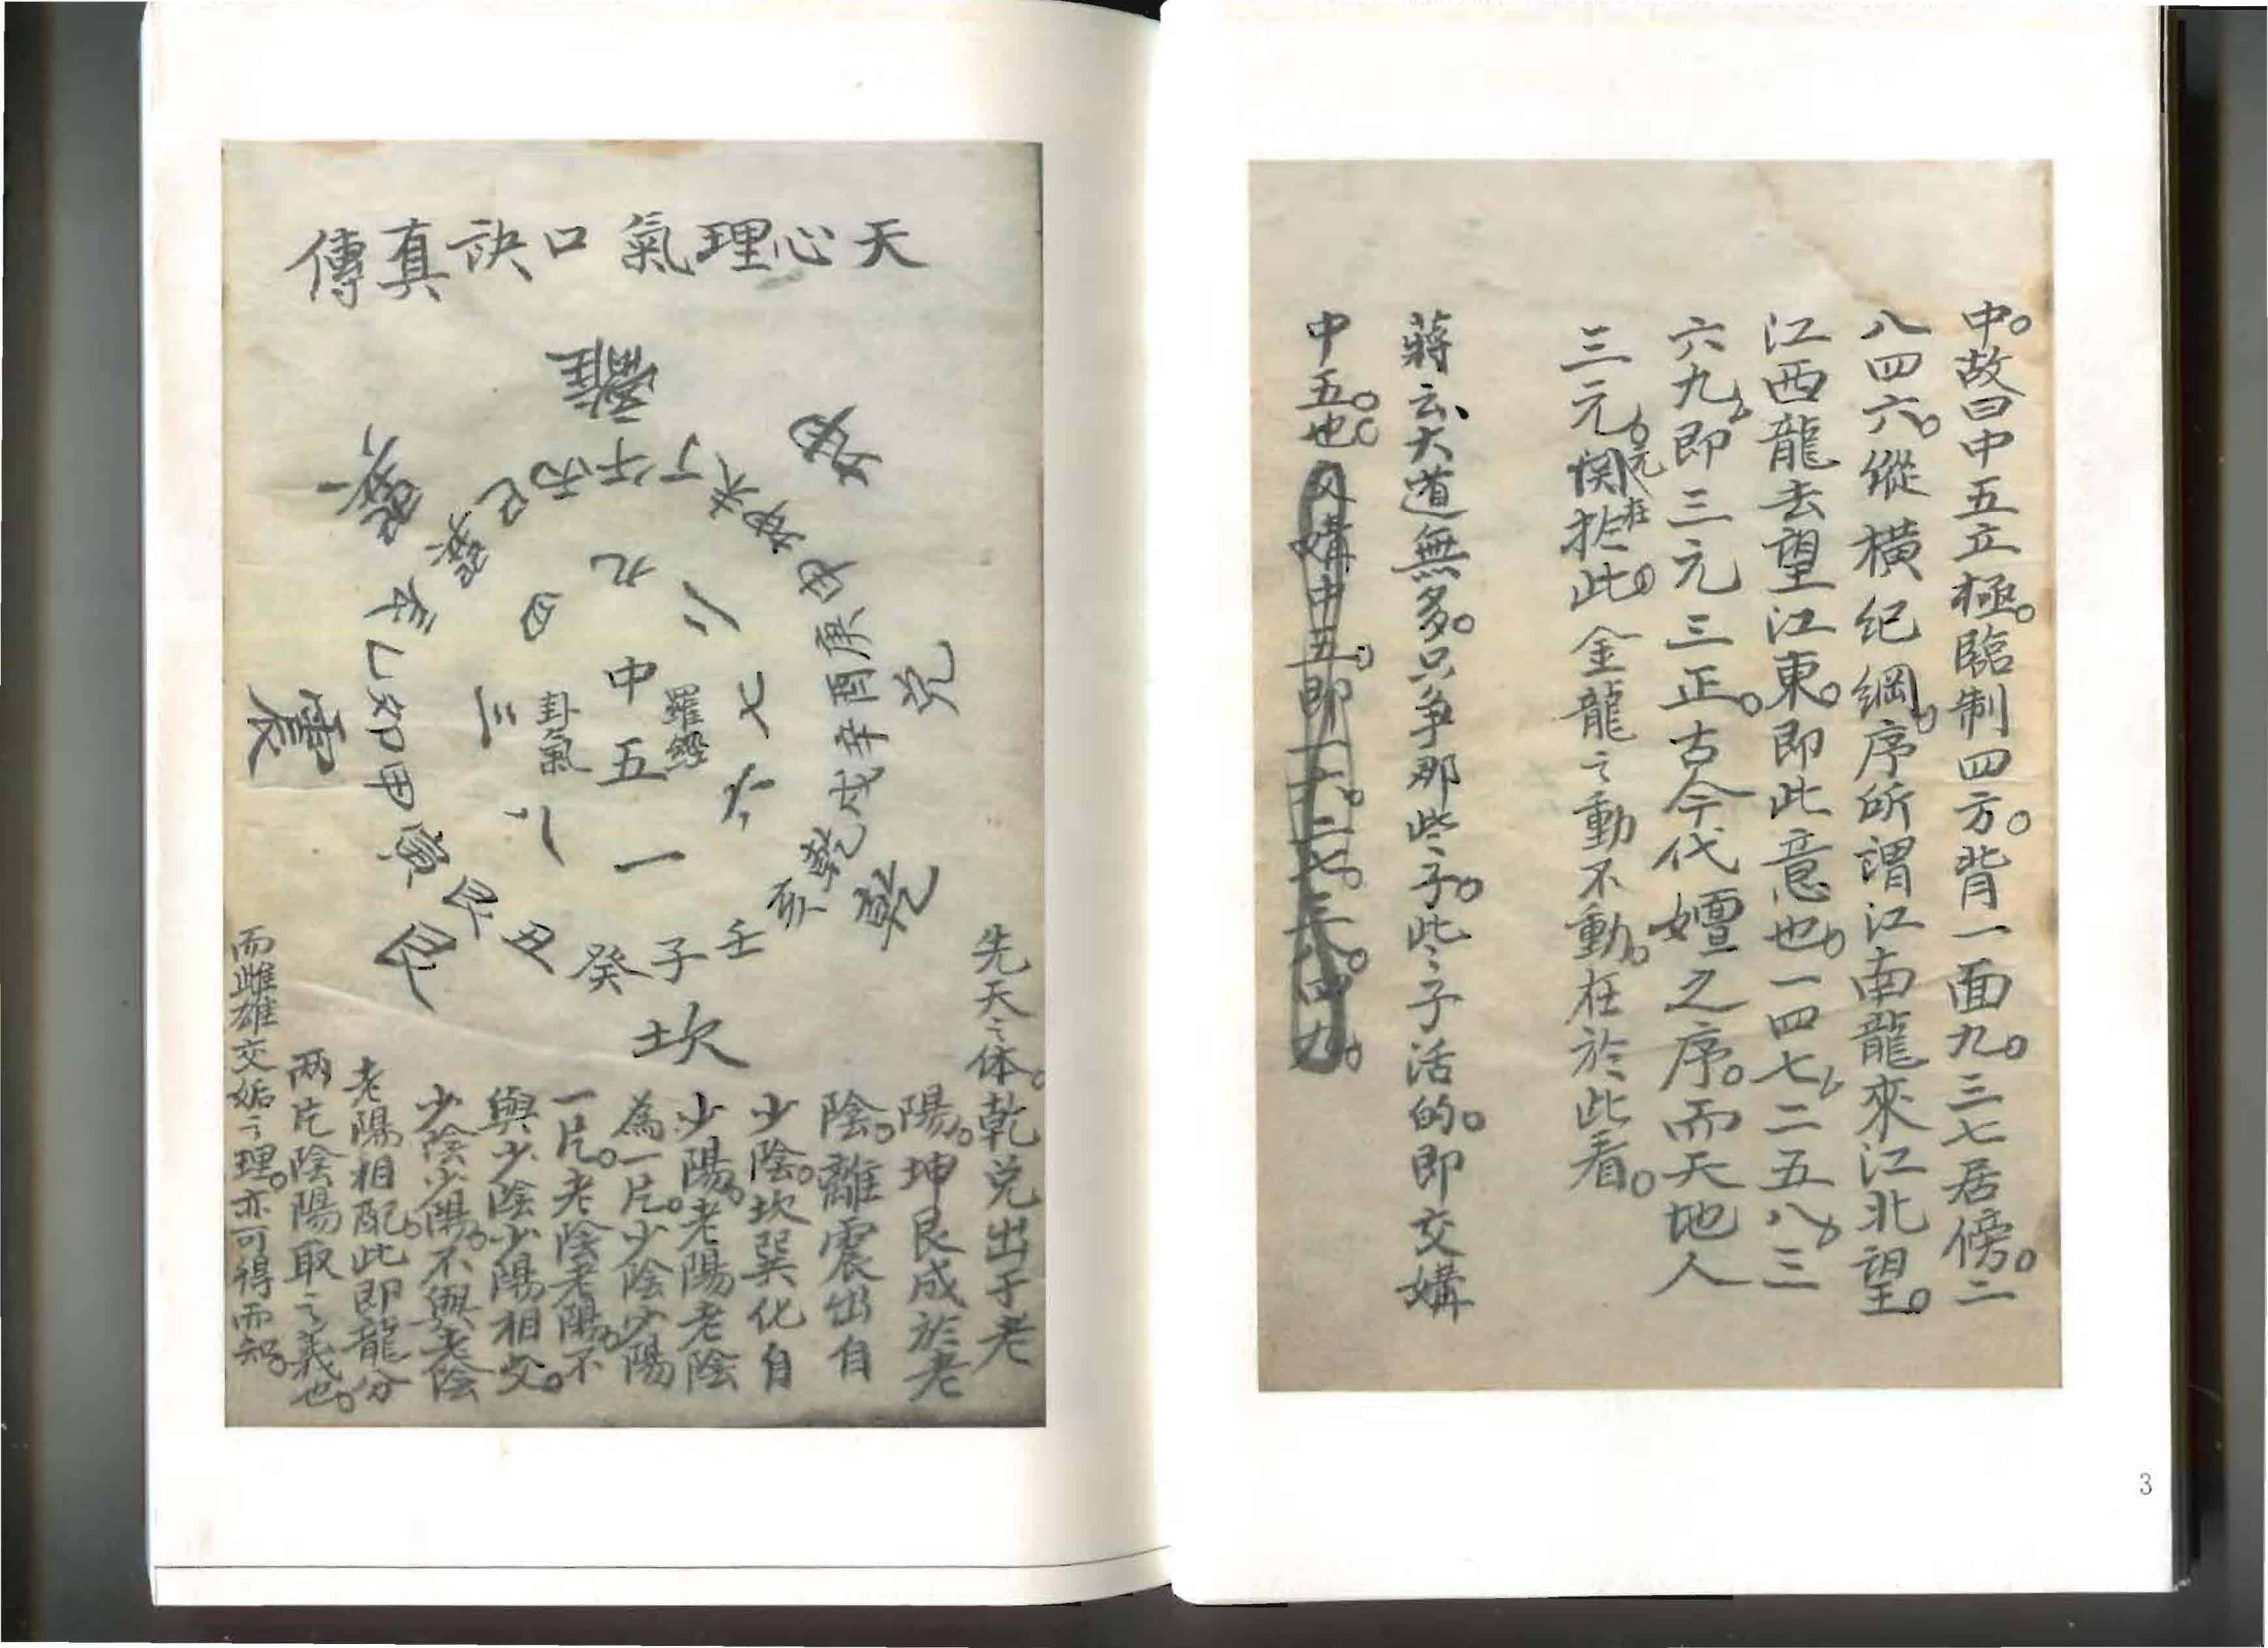 天心理氣口訣真傳
離
坤
兌
乾
坎
艮
震
巽
丙午丁未坤申庚酉辛戌乾亥壬子癸丑艮寅甲卯乙辰巽巳
九
二
七
六
一
八
三
四
中五
羅經
卦氣
先天之体。乾兌出于老
陽。坤艮成於老
陰。離震出自
少陰。坎巽化自
少陽。老陽老陰
為一片。少陰少陽
一片。老陰老陽。不
與少陰少陽相交。
少陰少陽。不與老陰
老陽相配。此即龍分
兩片陰陽取之義也。
而雌雄交姤之理。亦可得而知。
中。故曰中五立極。臨制四方。背一面九。三七居傍。二
八四六。縱橫纪綱。序所謂江南龍來江北望。
江西龍去望江東。即此意也。一四七、二五八、三
六九、即三元三正。古今代嬗之序。而天地人
三元。元在此。金龍之動不動。在於此看。
蔣云、大道無多。只争那些子。此之子活的。即交媾
中五。也。